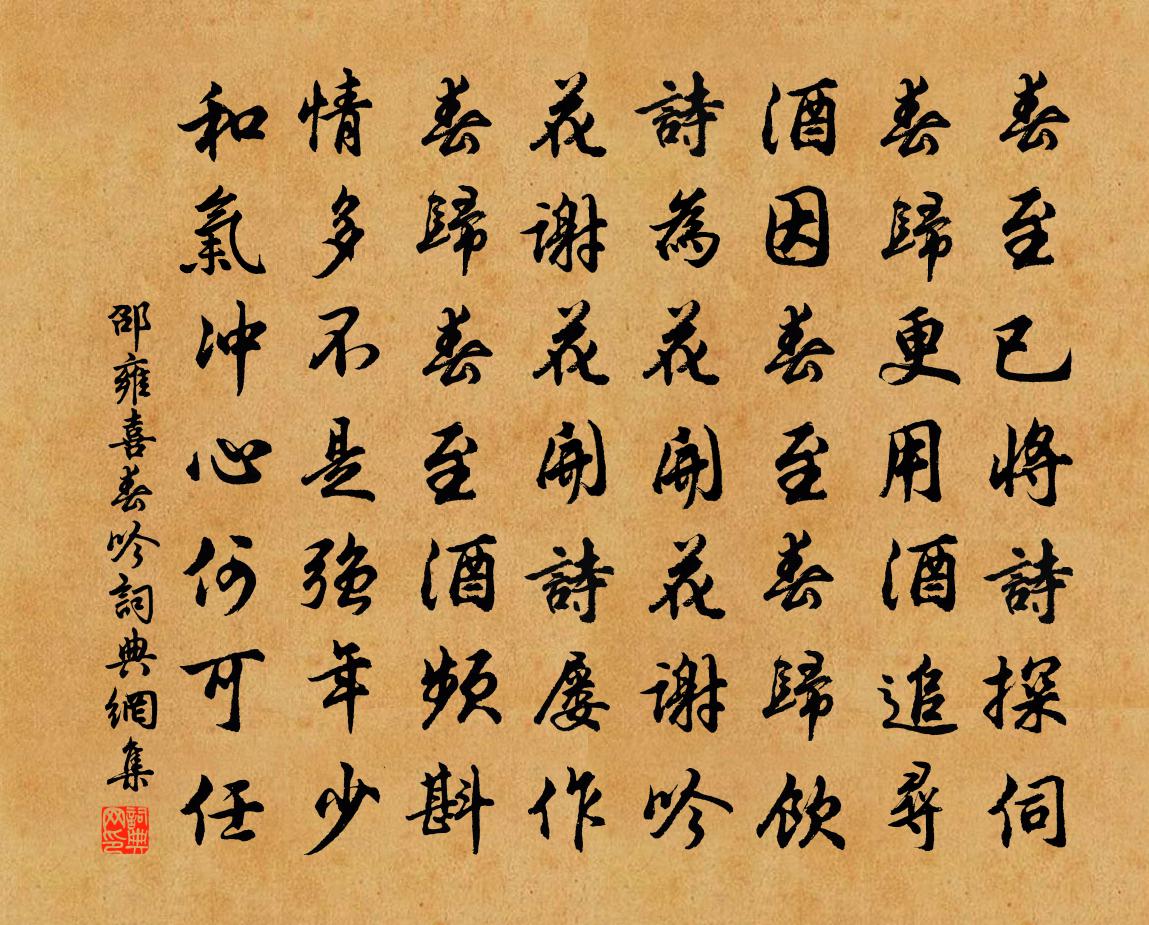 春至已將詩探伺
春歸更用酒追尋
酒因春至春歸飲
詩為花開花謝吟
花謝花開詩屢作
春歸春至酒頻斟
情多不是強年少
和氣沖心何可任
邵雍喜春吟詞典網集
詞典網印